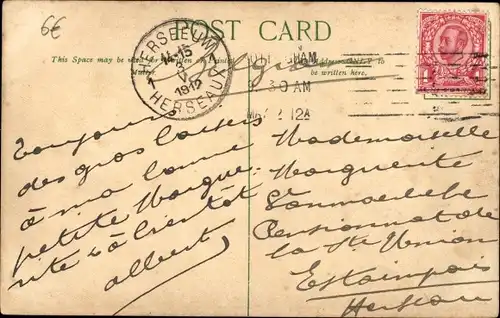 6€
POST CARD
This Space may be
to be written here.
HERSEEUW
14-15
1 V
1912
HERSEAUX
NOTTINGHAM
30 AM
MAY 12A
Toujours
des gros baisers
à ma bonne
petite Margue-
rite & à bientôt
albert
Mademoiselle
Marguerite
Pensionnat de
la Ste Union
Estaimpuis
Herseaux